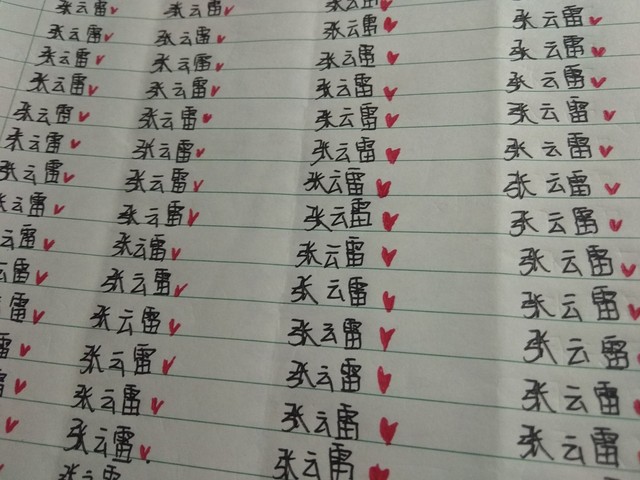 张云雷 张云雷 张云雷 张云雷
张云雷 张云雷 张云雷 张云雷
张云雷 张云雷 张云雷 张云雷
张云雷 张云雷 张云雷 张云雷
张云雷 张云雷 张云雷 张云雷
张云雷 张云雷 张云雷 张云雷
张云雷 张云雷 张云雷 张云雷
张云雷 张云雷 张云雷 张云雷
云雷 张云雷 张云雷 张云雷
云雷 张云雷 张云雷 张云雷
雷 张云雷 张云雷 张云雷
雷 张云雷 张云雷 张云雷
张云雷 张云雷 张云雷
张云雷 张云雷
张云雷